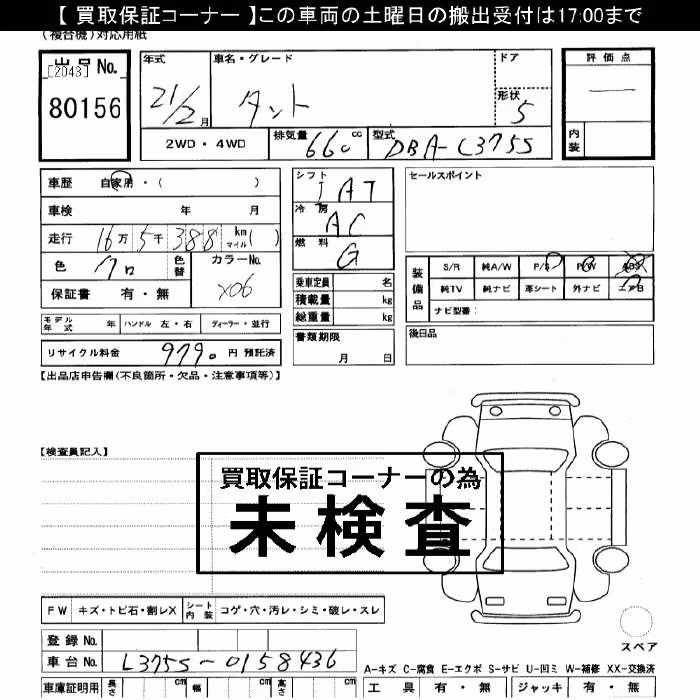 【 買取保証コーナー 】この車両の土曜日の搬出受付は17:00まで
(複合機)対応用紙
出品No.
[2043]
80156
年式
21/2月
車名・グレード
タント
ドア
形状 5
評価点
—
内装
2WD・4WD
排気量 660cc
型式 DBA-L375S
車歴 自家用・( )
車検 年 月
走行 16万5千388 km マイル( )
色 クロ
色替
カラーNo.
X06
保証書 有・無
シフト
IAT
冷房
AC
燃料
G
乗車定員 名
積載量 kg
総重量 kg
書類期限
月 日
セールスポイント
装備品
S/R 純A/W P/S P/W ABS
純TV 純ナビ 革シート 外ナビ エアB
ナビ型番:
後日品
モデル年式 年 ハンドル 左・右 ディーラー・並行
リサイクル料金 9790 円 預託済
【出品店申告欄(不良箇所・欠品・注意事項等)】
【検査員記入】
買取保証コーナーの為
未検査
FW キズ・トビ石・割レX シート内装 コゲ・穴・汚レ・シミ・破レ・スレ
スペア
登録No.
車台No. L375S-0158436
A-キズ C-腐食 E-エクボ S-サビ U-凹ミ W-補修 XX-交換済
車庫証明用 長さ cm 幅 cm 高さ cm
工具 有・無 ジャッキ 有・無